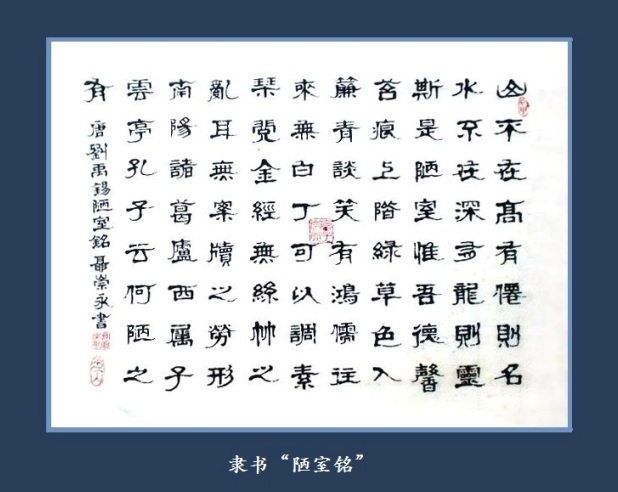 山不在高有僊則名
水不在深有龍則靈
斯是陋室惟吾德馨
苔痕上階綠草色入
簾青談笑有鴻儒往
來無白丁可以調素
琴閱金經無絲竹之
亂耳無案牘之勞形
南陽諸葛廬西蜀子
雲亭孔子云何陋之
有
唐劉禹錫陋室銘聶崇永書
隶书“陋室铭”